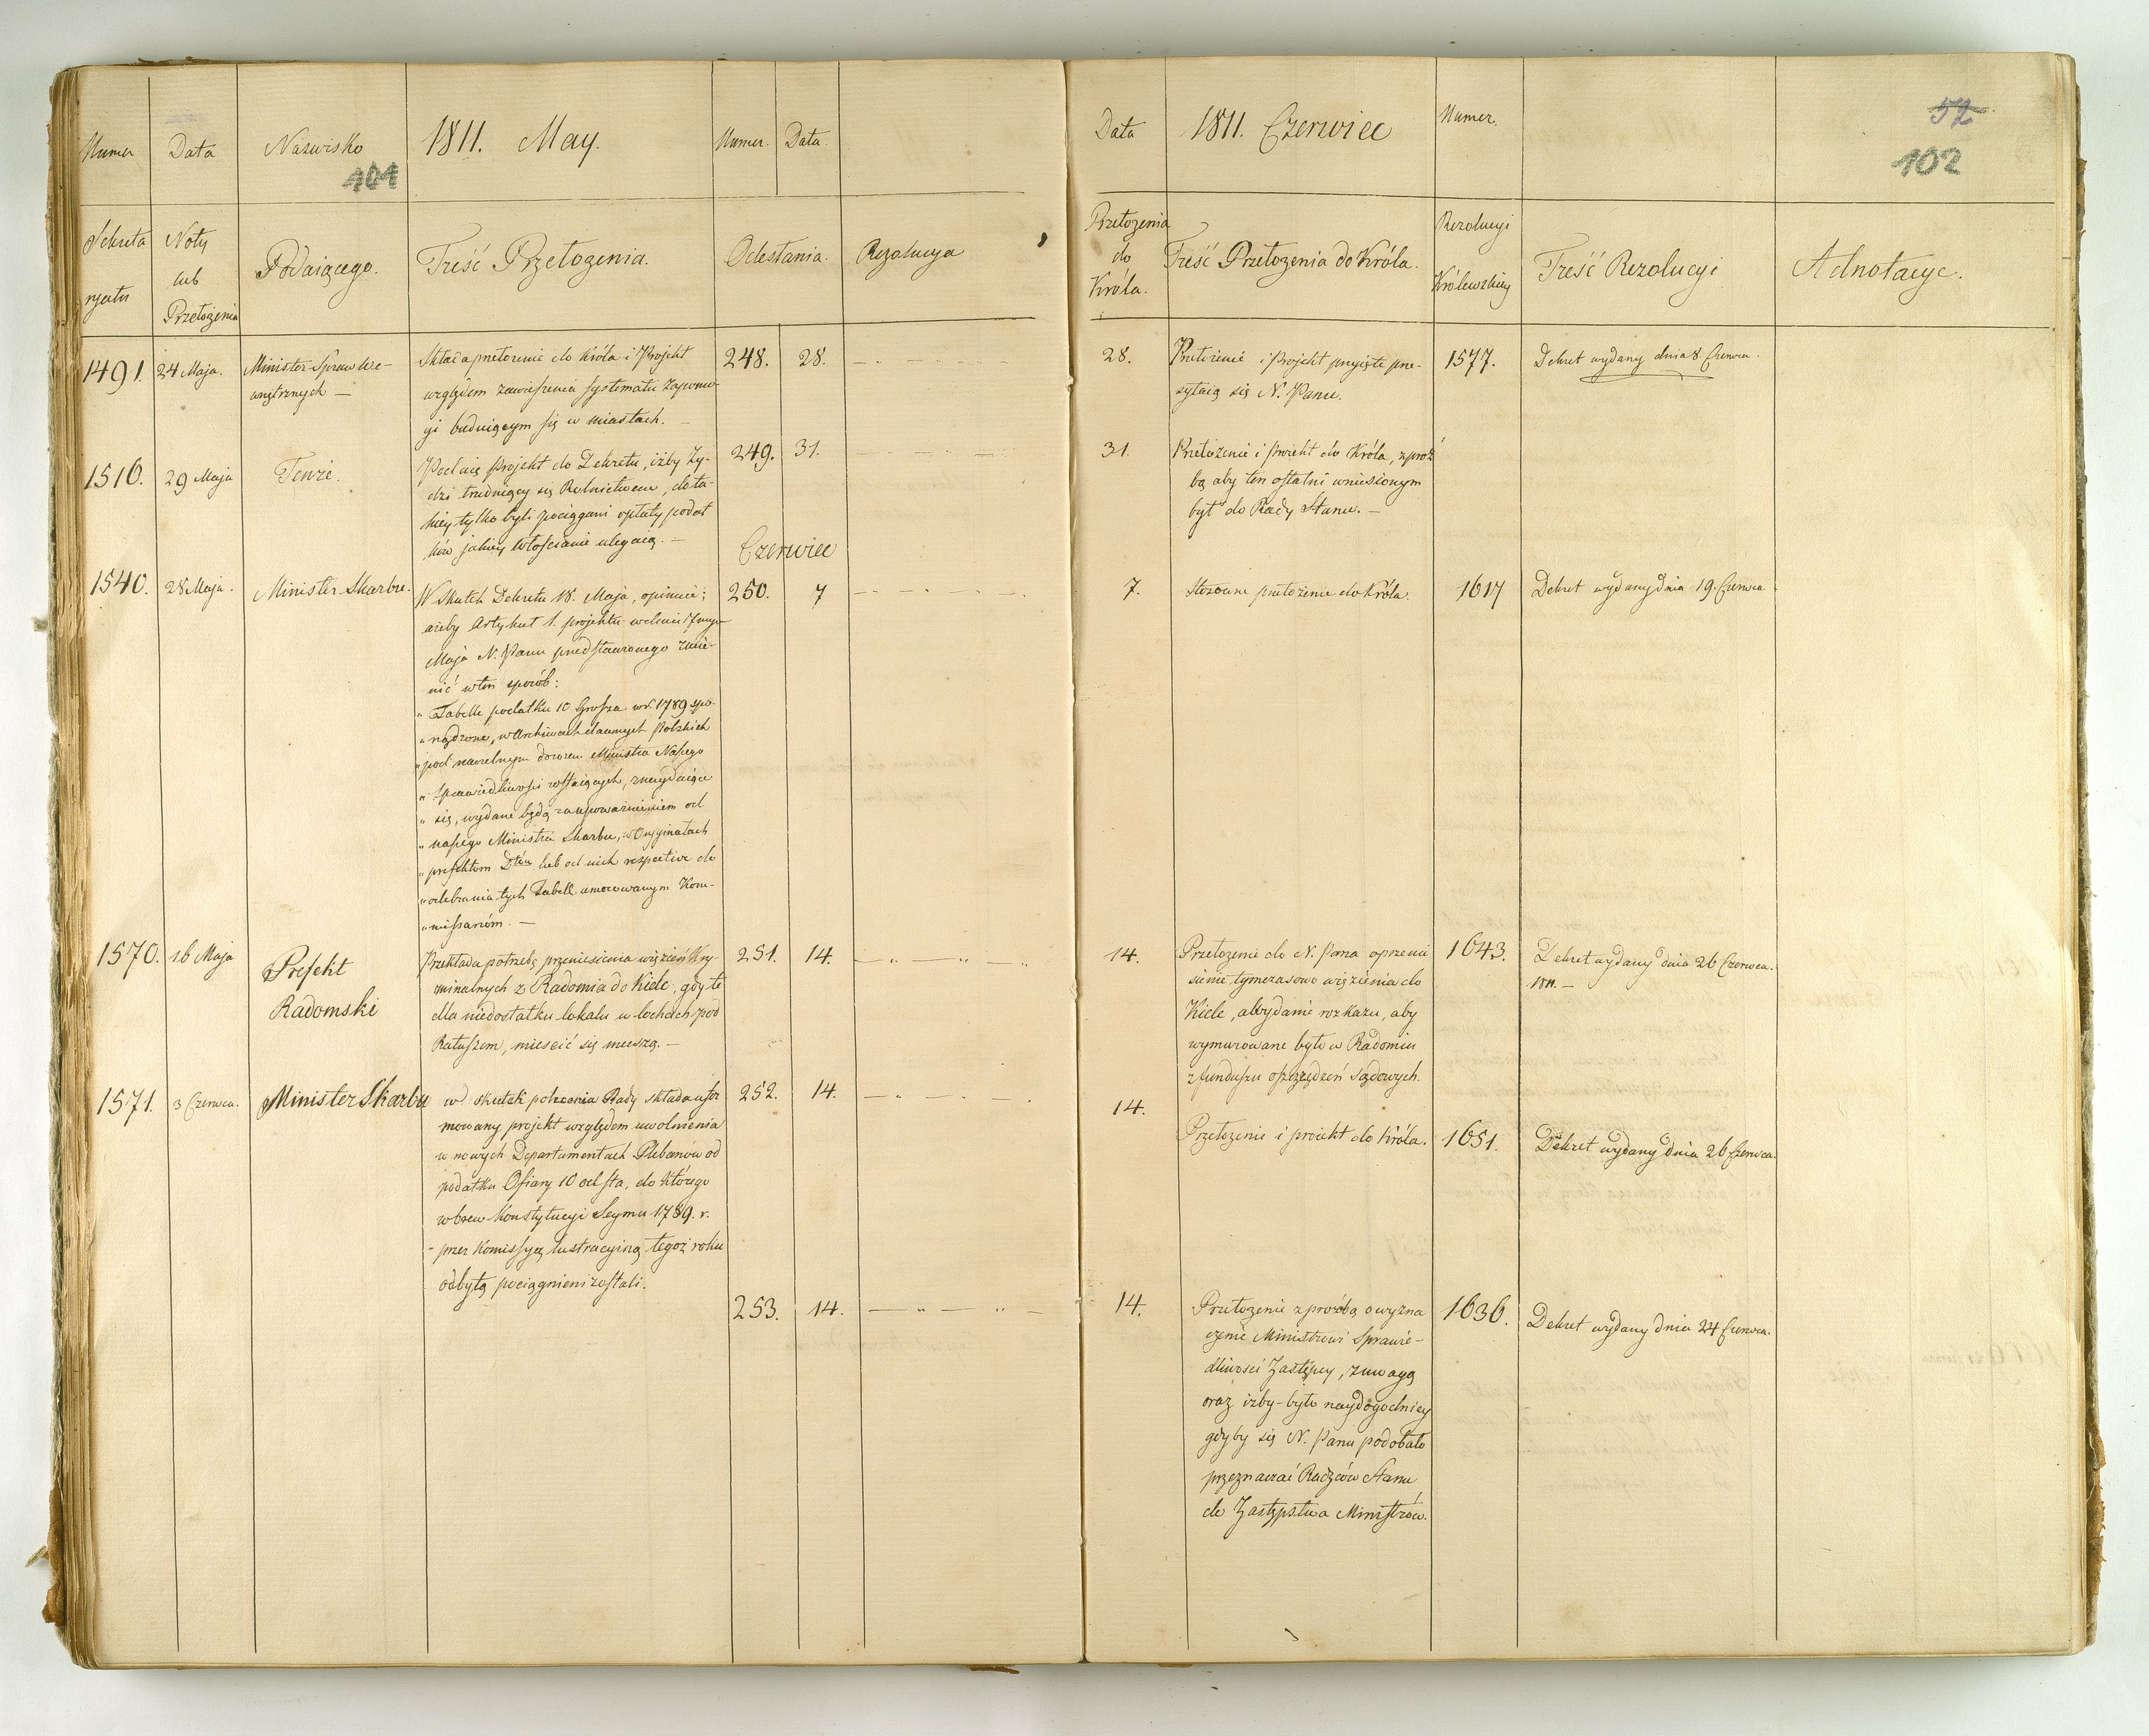 Numer
Data
Nazwisko
101
1811. May.
Numer. Data.
Sekreta
ryatu
Noty
lub
Przełożenia
Podaiącego.
Treść Przełożenia.
Odesłania.
Rezolucya
1491. 24 Maja. Minister Spraw We-
wnętrznych —
Składa przełożenie do Króla i Projekt
względem zawieszenia systematu
budującym się w miastach. —
248. 28.
1516. 29 Maja Tenże.
Podaię projekt do Dekretu, iżby Ży-
dzi trudniący się Rolnictwem, do ta-
kiey tylko byli pociągani opłaty podat
ków jakiey Włościanie ulegaią. —
249. 31.
Czerwiec
1540. 28 Maja. Minister Skarbu.
W Skutek Dekretu 18. Maja, opiniuie;
ażeby Artykuł 1. projektu
Maja N. Panu przedstawionego zmie-
nić w ten sposób:
„ Tabelle podatku 10 Grosza w r. 1789 spo-
„ rządzone, w Archiwach dawnych Polskich
„ pod naczelnym dozorem Ministra Naszego
„ Sprawiedliwości zostaiących, znayduiące
„ się, wydane będą za upoważnieniem od
„ naszego Ministra Skarbu, w Oryginałach
„ prefektom Dtów lub od nich respective do
„ odebrania tych Tabell umocowanym Kom-
„ missarzóm. —
250. 7
1570. 16 Maja Prefekt
Radomski
Przekłada potrzebę przeniesienia więzień Kry-
minalnych z Radomia do Kielc, gdy te
dla niedostatku lokalu w lochach pod
Ratuszem, mieścić się muszą. —
251. 14.
1571. 3 Czerwca. Minister Skarbu
w skutek polecenia Rady składa ufor
mowany projekt względem uwolnienia
w nowych Departamentach Plebanów od
podatku Ofiary 10 od sta, do którego
wbrew Konstytucyi Seymu 1789. r.
przez Komissyą lustracyiną tegoż roku
odbytą pociągnieni zostali.
252. 14.
253. 14.
Data
1811. Czerwiec
Numer.
52
102
Przełożenia
do
Króla.
Treść Przełożenia do Króla.
Rezolucyi
Królewskiey
Treść Rezolucyi
Adnotacye.
28.
Przełożenie i Projekt przyięte prze-
syłaią się N. Panu.
1577.
Dekret wydany dnia 8 Czerwca.
31.
Przełożenie i Proiekt do Króla, z proś
bą aby ten ostatni wniesionym
był do Rady Stanu. —
7.
Stosowne przełożenie do Króla.
1617
Dekret wydany dnia 19. Czerwca.
14.
Przełożenie do N. Pana o przenie
sienie tymczasowo więzienia do
Kielc, a wydanie rozkazu, aby
wymurowane było w Radomiu
z funduszu oszczędzeń Sądowych.
1643.
Dekret wydany dnia 26 Czerwca.
1811. —
14.
Przełożenie i proiekt do Króla.
1651.
Dekret wydany dnia 26 Czerwca.
14.
Przełożenie z prośbą o wyzna
czenie Ministrowi Sprawie-
dliwości Zastępcy, z uwagą
oraz iżby było naydogodniey
gdyby się N. Panu podobało
przeznaczać Radzców Stanu
do Zastępstwa Ministrów.
1636.
Dekret wydany dnia 24 Czerwca.